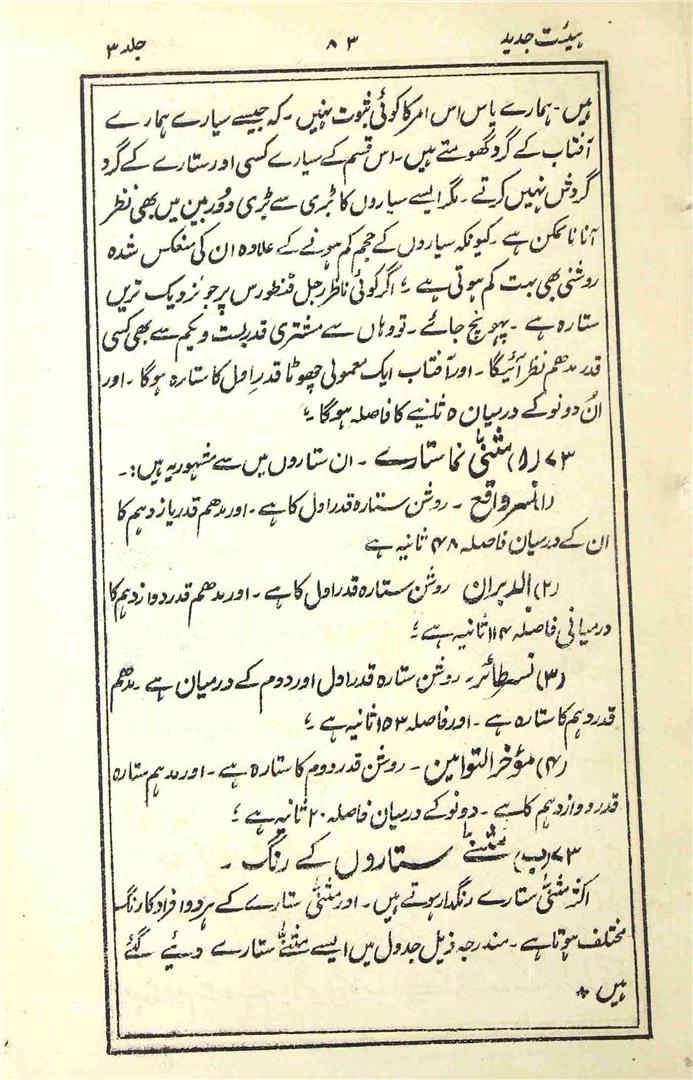 ہیئت جدید ۸۳ جلد ۳
ہیں۔ ہمارے پاس اس امر کا کوئی ثبوت نہیں۔ کہ جیسے سیارے ہمارے
آفتاب کے گرد گھومتے ہیں۔ اس قسم کے سیارے کسی اور ستارے کے گرد
گردش نہیں کرتے۔ مگر ایسے سیاروں کا بڑی سے بڑی دوُربین میں بھی نظر
آنا ناممکن ہے۔ کیونکہ سیاروں کے حجم کم ہونے کے علاوہ ان کی منعکس شدہ
روشنی بھی بہت کم ہوتی ہے ؛ اگر کوئی ناظر رجل قنطورس پر جو نزدیک تریں
ستارہ ہے۔ پہونچ جائے۔ تو وہاں سے مشتری قدر بست و یکم سے بھی کسی
قدر مدھم نظر آئیگا۔ اور آفتاب ایک معمولی چھوٹا قدرِ اول کا ستارہ ہوگا۔ اور
اُن دونو کے درمیان ۵ ثانیے کا فاصلہ ہوگا۔ ؛
۷۳ (ا) مثنیٰ نما ستارے۔ ان ستاروں میں سے مشہور یہ ہیں:۔
(۱) نسر واقع۔ روشن ستارہ قدر اول کا ہے۔ اور مدھم قدر یازدہم کا
ان کے درمیان فاصلہ ۴۸ ثانیہ ہے
(۲) الدبران روشن ستارہ قدر اول کا ہے۔ اور مدھم قدر دوازدہم کا
درمیانی فاصلہ ۱۱۴ ثانیہ ہے ؛
(۳) نسر طائر۔ روشن ستارہ قدر اول اور دوم کے درمیان ہے۔ مدھم
قدر دہم کا ستارہ ہے۔ اور فاصلہ ۱۵۳ ثانیہ ہے ؛
(۴) مؤخر التوامین۔ روشن قدر دوم کا ستارہ ہے۔ اور مدہم ستارہ
قدر دوازدہم کا ہے۔ دونو کے درمیان فاصلہ ۲۰ ثانیہ ہے ؛
۷۳ (ب) مثنےٰ ستاروں کے رنگ۔
اکثر مثنیٰ ستارے رنگدار ہوتے ہیں۔ اور مثنیٰ ستارے کے ہر دو افراد کا رنگ
مختلف ہوتا ہے۔ مندرجہ ذیل جدول میں ایسے مثنےٰ ستارے دئیے گئے
ہیں *